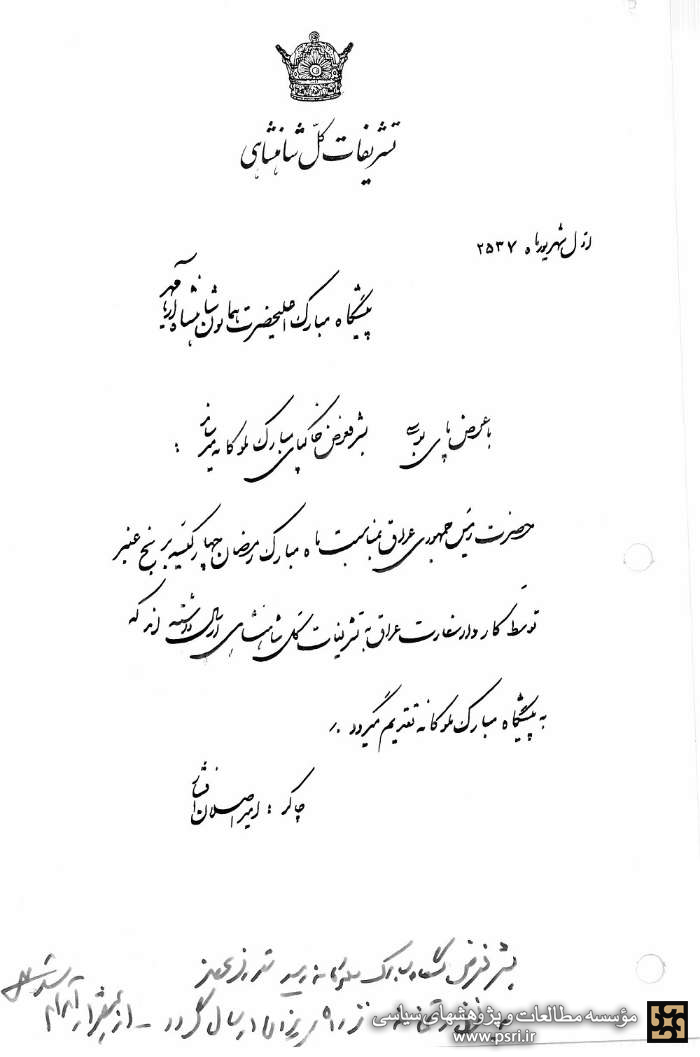 تشریفات کل شاهنشاهی
اول شهریور ماه ۲۵۳۷
پیشگاه مبارک اعلیحضرت همایون شاهنشاه آریامهر
با عرض پای بوسی بشرفعرض خاکپای مبارک ملوکانه میرساند :
حضرت رئیس جمهوری عراق بمناسبت ماه مبارک رمضان چهار کیسه برنج عنبر
توسط کاردار سفارت عراق به تشریفات کل شاهنشاهی ارسال داشته اند که
به پیشگاه مبارک ملوکانه تقدیم میگردد ./
چاکر : امیر اصلان افشار
بشرفعرض پیشگاه مبارک ملوکانه رسید
ارسال گردد - از
مؤسسه مطالعات و پژوهشهای سیاسی
www.psri.ir